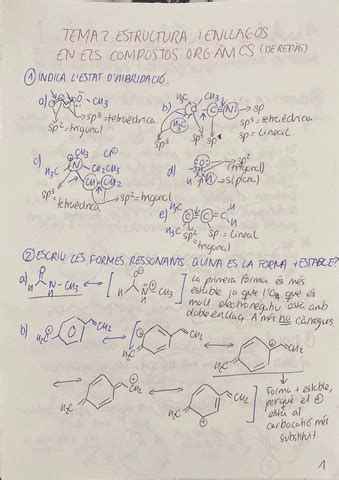 TEMA 2 ESTRUCTURA I ENLLAÇOS
EN ELS COMPOSTOS ORGÀNICS (DE REPÀS)
① INDICA L'ESTAT D'HIBRIDACIÓ
a) O CH3
sp3=tetraèdrica
sp2=trigonal
b) H3C C C N: sp
H3C
sp3 sp3 sp
sp3=tetraèdrica
sp=lineal
c) CH3 Cl⊖
H3C N CH2CH3
CH=CH2
sp3 sp2=trigonal
tetraèdrica
d) :O: sp2
(trigonal)
H s(plana)
e) H3C C=C=C H
H
sp sp=lineal
sp2=trigonal
② ESCRIU LES FORMES RESSONANTS. QUINA ES LA FORMA + ESTABLE?
a) O
H N-CH3
H
O⊖
H N CH3
H
La primera forma és més
estable ja que l'O, que és
molt electronegatiu està amb
doble enllaç. A més no càrregues
b) H3C CH2
H3C CH2
H3C CH2
H3C CH2
H3C CH2
Forma + estable,
perquè el ⊕
està al
carbocatió més
substituït.
1